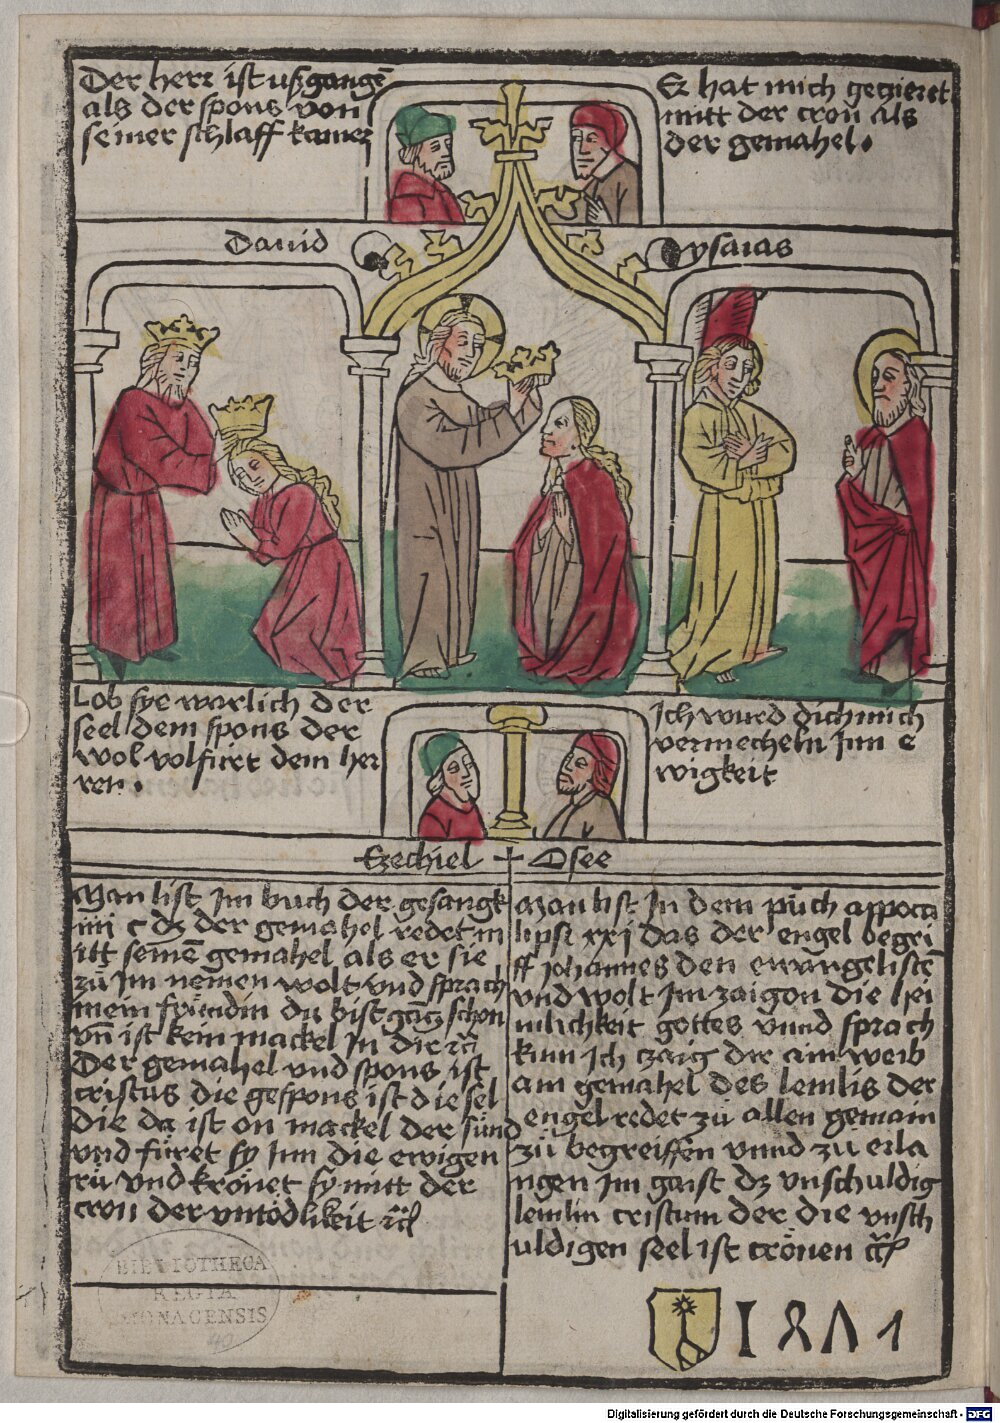 Der herr ist usßgangē
als der spons von
seiner schlaff kamer
Er hat mich gezieret
mitt der cron als
der gemahel.
Dauid
ysaias
Lob sye warlich der
seel dem spons der
wol volfürt dem her
ren.
Ich wurd dich mich
vermecheln Inn e
wigkeit
Ezechiel + Osee
Man list Im buch der gesangk
iiii c dz der gemahel redet m
itt seinē gemahel als er sie
zů Im nemen wolt vnd sprach
mein fründin du bist gātz schon
vn̄ ist kein mackel In dir rc̄
Der gemahel vnd spons ist
cristus die gespons ist die sel
die da ist on mackel der sünd
vnd füret sy Inn die ewigen
rů vnd krönet sy mitt der
cron der vntödlikeit rc̄
Man list In dem půch appoca
lipsi xxi das der engel begri
ff Johannes den ewangelistē
vnd wolt Im zaigon die hei
mlichkeit gottes vnnd sprach
kum Ich tzaig dir ain weib
am gemahel des lemlis der
engel redet zů allen gemain
zů begreiffen vnnd zů erla
ngen Im gaist dz vnschuldig
lemlin cristum der die vnsch
uldigen seel ist crönen rc̄
BIBLIOTHECA
REGIA
MONACENSIS
1471
Digitalisierung gefördert durch die Deutsche Forschungsgemeinschaft - DFG